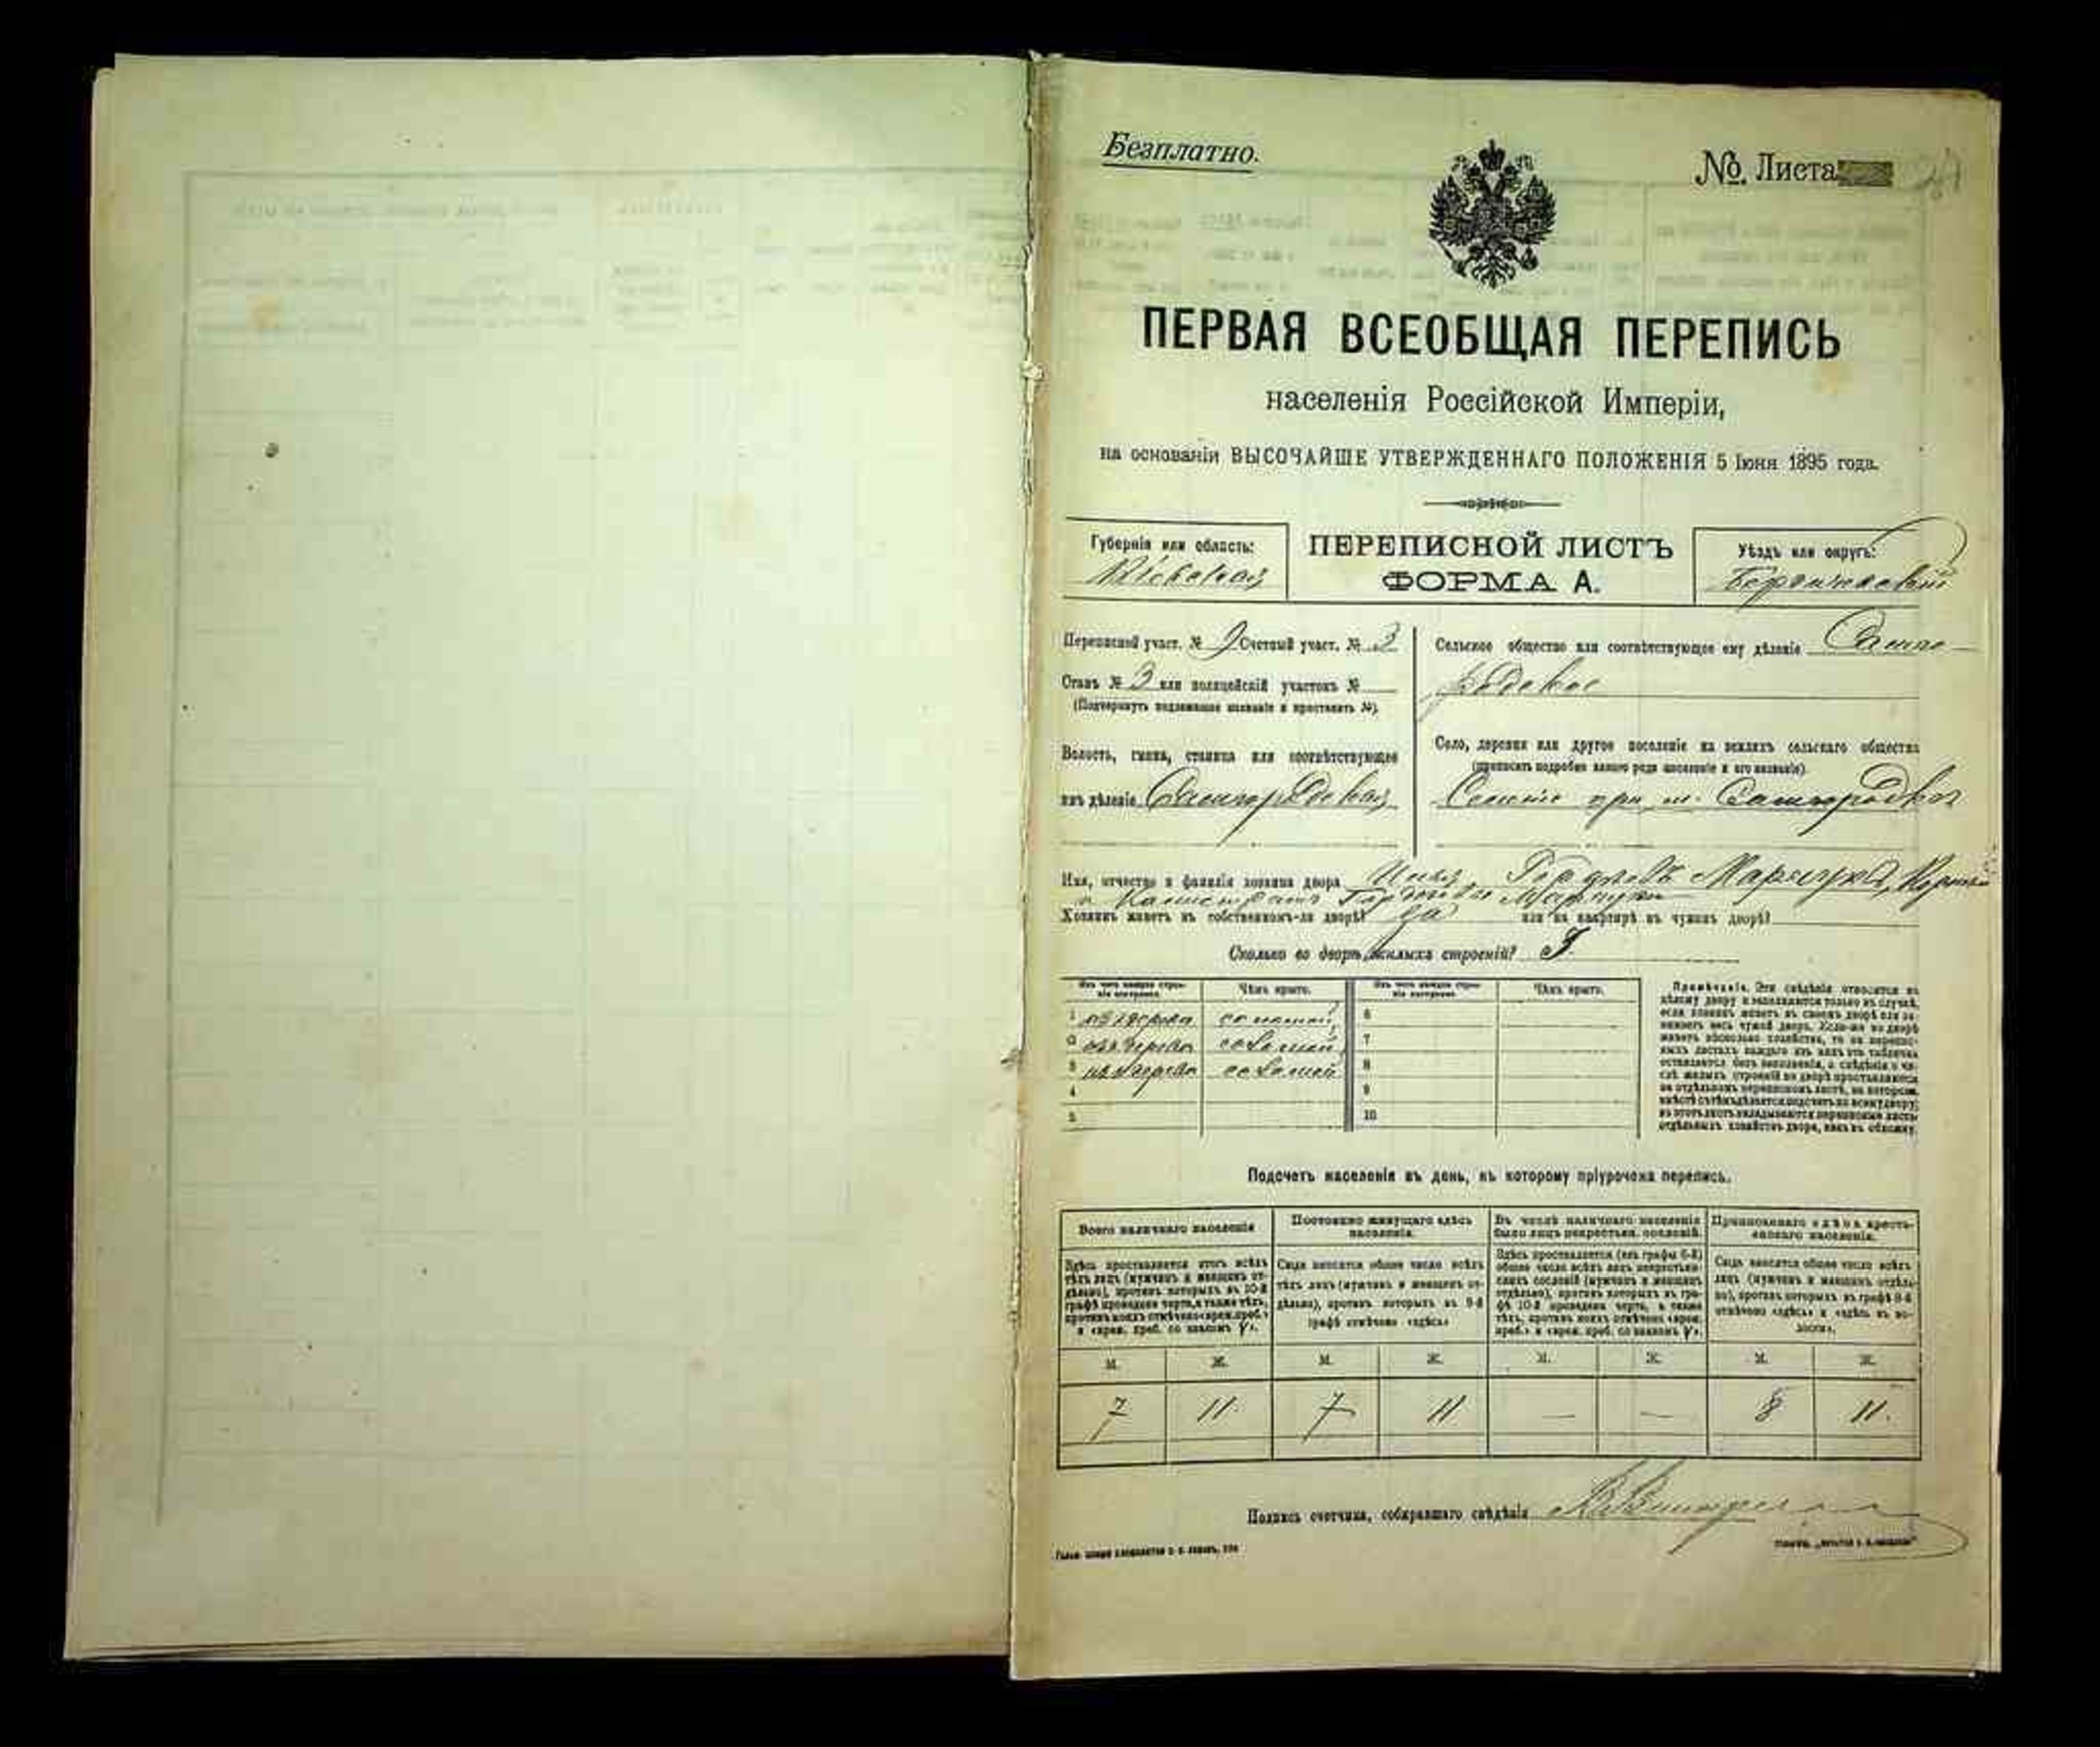 Безплатно.
№ Листа
ПЕРВАЯ ВСЕОБЩАЯ ПЕРЕПИСЬ
населенія Россійской Имперіи,
на основаніи ВЫСОЧАЙШЕ УТВЕРЖДЕННАГО ПОЛОЖЕНІЯ 5 Іюня 1895 года.
Губернія или область:
Кіевская
ПЕРЕПИСНОЙ ЛИСТЪ
ФОРМА А.
Уѣздъ или округъ:
Бердичевскій
Переписной участ. № 9 Счетный участ. № 3
Станъ № 3 или полицейскій участокъ №
(Подчеркнуть надлежащее названіе и проставить №).
Волость, гмина, станица или соотвѣтствующее
имъ дѣленіе Самгородская
Сельское общество или соотвѣтствующее ему дѣленіе Самго-
родское
Село, деревня или другое поселеніе на земляхъ сельскаго общества
(прописать подробно какого рода поселеніе и его названіе).
при м. Самгородкѣ
Имя, отчество и фамилія хозяина двора
Хозяинъ живетъ въ собственномъ-ли дворѣ? да или на квартирѣ въ чужомъ дворѣ?
Сколько во дворѣ жилыхъ строеній? 3.
Изъ чего каждое строе-
ніе построено.
Чѣмъ крыто.
Изъ чего каждое строе-
ніе построено.
Чѣмъ крыто.
1 изъ дерева соломой 6
2 изъ дерева соломой 7
3 изъ дерева соломой 8
4 9
5 10
Примѣчаніе. Эти свѣдѣнія относятся къ
цѣлому двору и заполняются только въ случаѣ,
если хозяинъ живетъ въ своемъ дворѣ или за-
нимаетъ весь чужой дворъ. Если-же во дворѣ
живетъ нѣсколько хозяйствъ, то на перепис-
ныхъ листахъ каждаго изъ нихъ эта табличка
оставляется безъ заполненія, а свѣдѣнія о чи-
слѣ жилыхъ строеній во дворѣ проставляются
на отдѣльномъ переписномъ листѣ, на которомъ
вмѣстѣ съ тѣмъ дѣлается подсчетъ по всему двору;
въ этотъ листъ вкладываются переписные листы
отдѣльныхъ хозяйствъ двора, какъ въ обложку.
Подсчетъ населенія въ день, къ которому пріурочена перепись.
Всего наличнаго населенія
Постоянно живущаго здѣсь
населенія.
Въ числѣ наличнаго населенія
было лицъ некрестьян. сословій.
Приписаннаго здѣсь кресть-
янскаго населенія.
Здѣсь проставляется итогъ всѣхъ
тѣхъ лицъ (мужчинъ и женщинъ от-
дѣльно), противъ которыхъ въ 10-й
графѣ проведена черта, а также тѣхъ,
противъ коихъ отмѣчено «врем. преб.»
и «врем. преб. со знакомъ
Сюда вносится общее число всѣхъ
тѣхъ лицъ (мужчинъ и женщинъ от-
дѣльно), противъ которыхъ въ 9-й
графѣ отмѣчено «здѣсь»
Здѣсь проставляется (изъ графы 6-й)
общее число всѣхъ лицъ некрестьян-
скихъ сословій (мужчинъ и женщинъ
отдѣльно), противъ которыхъ въ гра-
фѣ 10-й проведена черта, а также
тѣхъ, противъ коихъ отмѣчено «врем.
преб.» и «врем. преб. со знакомъ
Сюда вносится общее число всѣхъ
лицъ (мужчинъ и женщинъ отдѣль-
но), противъ которыхъ въ графѣ 8-й
отмѣчено «здѣсь» и «здѣсь въ во-
лости».
М. Ж. М. Ж. М. Ж. М. Ж.
7 11. 7 11 — — 8 11.
Подпись счетчика, собиравшаго свѣдѣнія